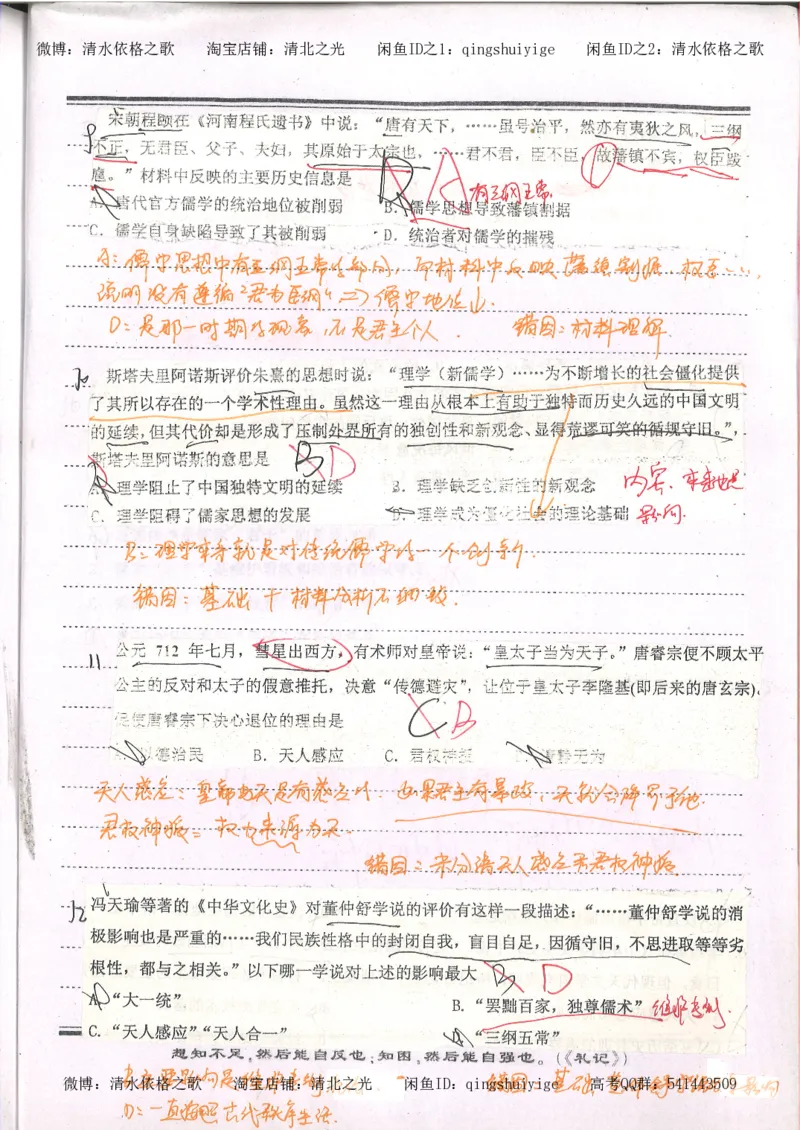 微博：清水依格之歌 淘宝店铺：清北之光 闲鱼ID之1：qingshuiyige 闲鱼ID之2：清水依格之歌
9 宋朝程颐在《河南程氏遗书》中说：“唐有天下，……虽号治平，然亦有夷狄之风，三纲
不正，无君臣、父子、夫妇，其原始于太宗也，……君不君，臣不臣，故藩镇不宾，权臣跋
扈。”材料中反映的主要历史信息是
B A 有三纲五常
A．唐代官方儒学的统治地位被削弱 B．儒学思想导致藩镇割据
C．儒学自身缺陷导致了其被削弱 D．统治者对儒学的摧残
B：儒学思想中有三纲五常的部分，而材料中反映藩镇割据 权臣……，
说明没有遵循“君为臣纲”⇒儒学地位↓．
D：是那一时期的现象，不是君主个人． 错因：材料理解．
10 斯塔夫里阿诺斯评价朱熹的思想时说：“理学（新儒学）……为不断增长的社会僵化提供
了其所以存在的一个学术性理由。虽然这一理由从根本上有助于独特而历史久远的中国文明
的延续，但其代价却是形成了压制处界所有的独创性和新观念、显得荒谬可笑的循规守旧。”，
斯塔夫里阿诺斯的意思是 B D
A．理学阻止了中国独特文明的延续 B．理学缺乏创新性的新观念 内容．
C．理学阻碍了儒家思想的发展 D．理学成为僵化社会的理论基础 影响．
B：理学本身就是对传统儒学的一个创新．
错因：基础＋材料分析不细致．
11 公元 712 年七月，彗星出西方，有术师对皇帝说：“皇太子当为天子。”唐睿宗便不顾太平
公主的反对和太子的假意推托，决意“传德避灾”，让位于皇太子李隆基(即后来的唐玄宗)。
促使唐睿宗下决心退位的理由是 C B
A．以德治民 B．天人感应 C．君权神授 D．清静无为
天人感应：皇帝与天是有感应的．如果君主有暴政，天就会降罪于他．
君权神授：权力来源为天．
错因：未分清天人感应和君权神授．
12 冯天瑜等著的《中华文化史》对董仲舒学说的评价有这样一段描述：“……董仲舒学说的消
极影响也是严重的……我们民族性格中的封闭自我，盲目自足，因循守旧，不思进取等等劣
根性，都与之相关。”以下哪一学说对上述的影响最大 B D
A．“大一统” B．“罢黜百家，独尊儒术”
C．“天人感应”“天人合一” D．“三纲五常”
想知不足，然后能自反也；知困，然后能自强也。（《礼记》）
微博：清水依格之歌 淘宝店铺：清北之光 闲鱼ID：qingshuiyige 高考QQ群：541443509